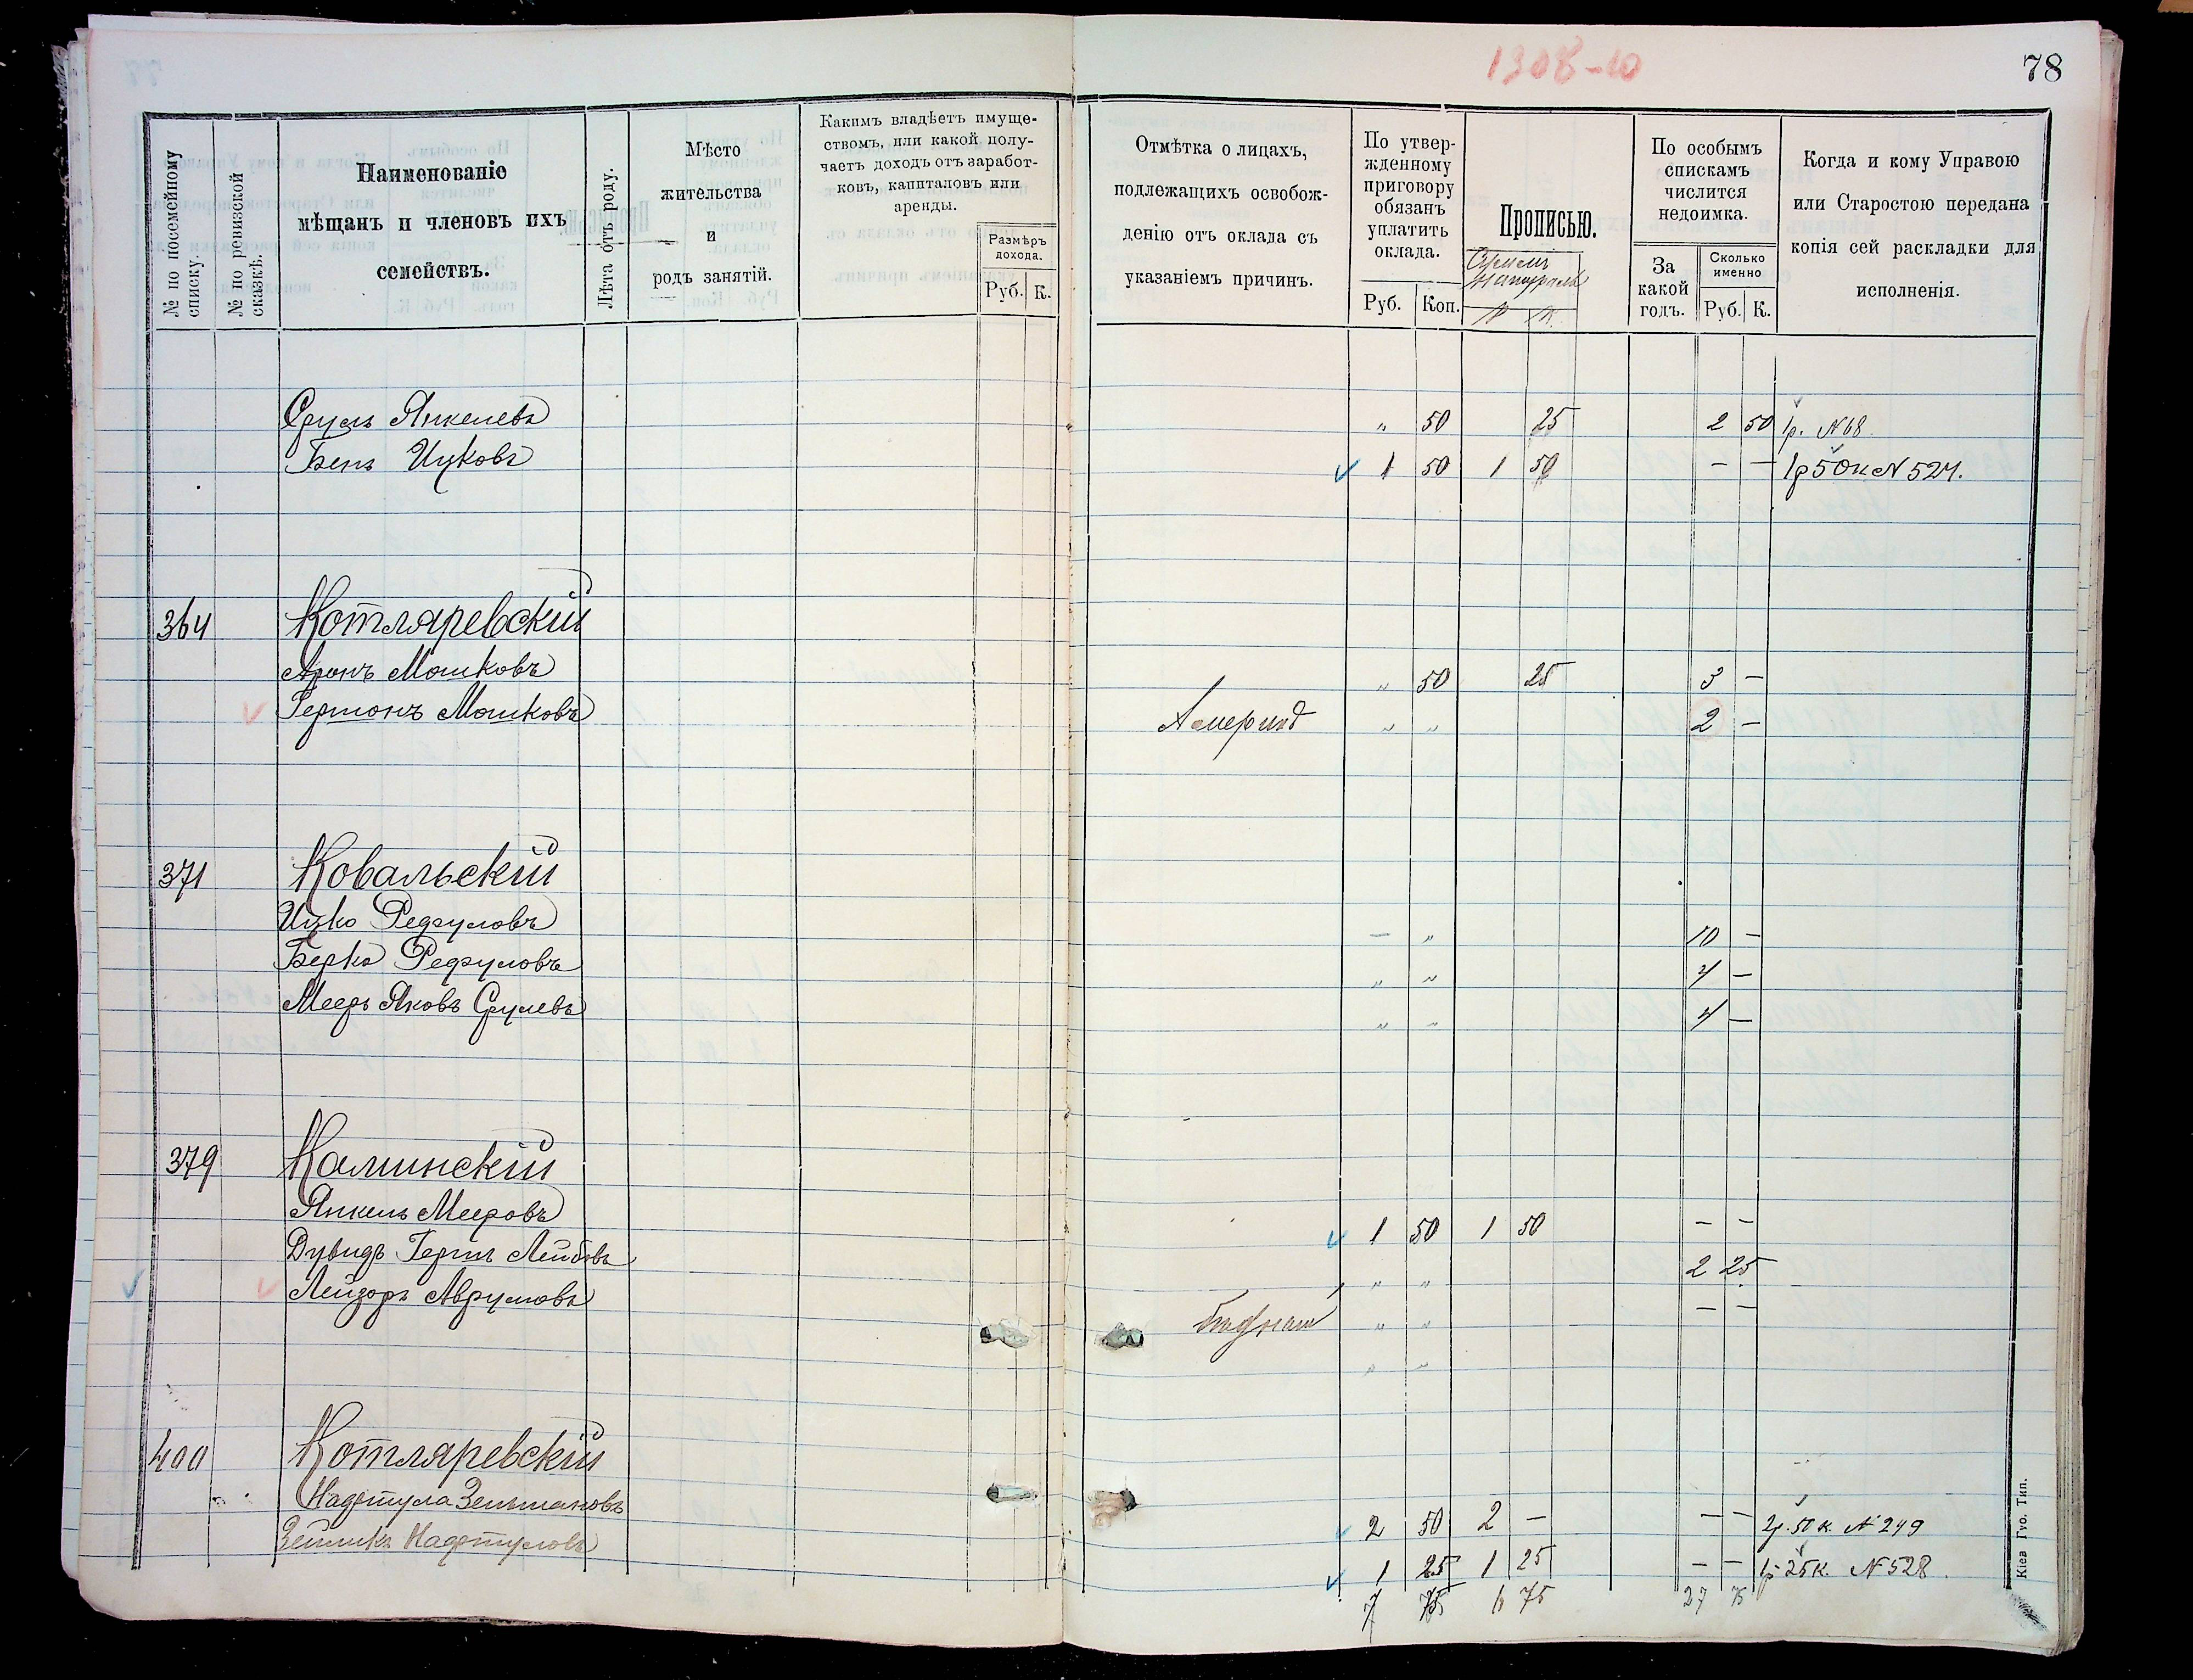 1308-10
78
№ по посемейному списку.
№ по ревизской сказкѣ.
Наименованіе
мѣщанъ и членовъ ихъ
семействъ.
Лѣта отъ роду.
Мѣсто
жительства
и
родъ занятій.
Какимъ владѣетъ имуще-
ствомъ, или какой полу-
чаетъ доходъ отъ заработ-
ковъ, капиталовъ или
аренды.
Размѣръ
дохода.
Руб. К.
Отмѣтка о лицахъ,
подлежащихъ освобож-
денію отъ оклада съ
указаніемъ причинъ.
По утвер-
жденному
приговору
обязанъ
уплатить
оклада.
Руб. Коп.
Прописью.
Р К.
По особымъ
спискамъ
числится
недоимка.
За
какой
годъ.
Сколько
именно
Руб. К.
Когда и кому Управою
или Старостою передана
копія сей раскладки для
исполненія.
Сруль Янкелевъ „ 50 25 2 50 1р. №68
Бенъ Ицковъ 1 50 1 50 – – 1р 50к № 527.
364 Котляревскій
Аронъ Мошковъ „ 50 25 3 –
Гершонъ Мошковъ „ „ 2 –
371 Ковальскій
Ицко Рефуловъ – „ 10 –
Берко Рефуловъ „ „ 4 –
Мееръ Яковъ Срулевъ „ „ 4 –
379 Калинскій
Янкель Мееровъ 1 50 1 50 – –
Дувидъ Гершъ Лейбовъ „ „ 2 25
Лейзоръ Аврумовъ „ „ – –
„ „
400 Котляревскій
Нафтула Зельмановъ 2 50 2 – – – 2р. 50 к. № 249
Зейликъ Нафтуловъ 1 25 1 25 – – 1р 25к. № 528.
7 75 6 75 27 75
Кіев Гуо. Тип.